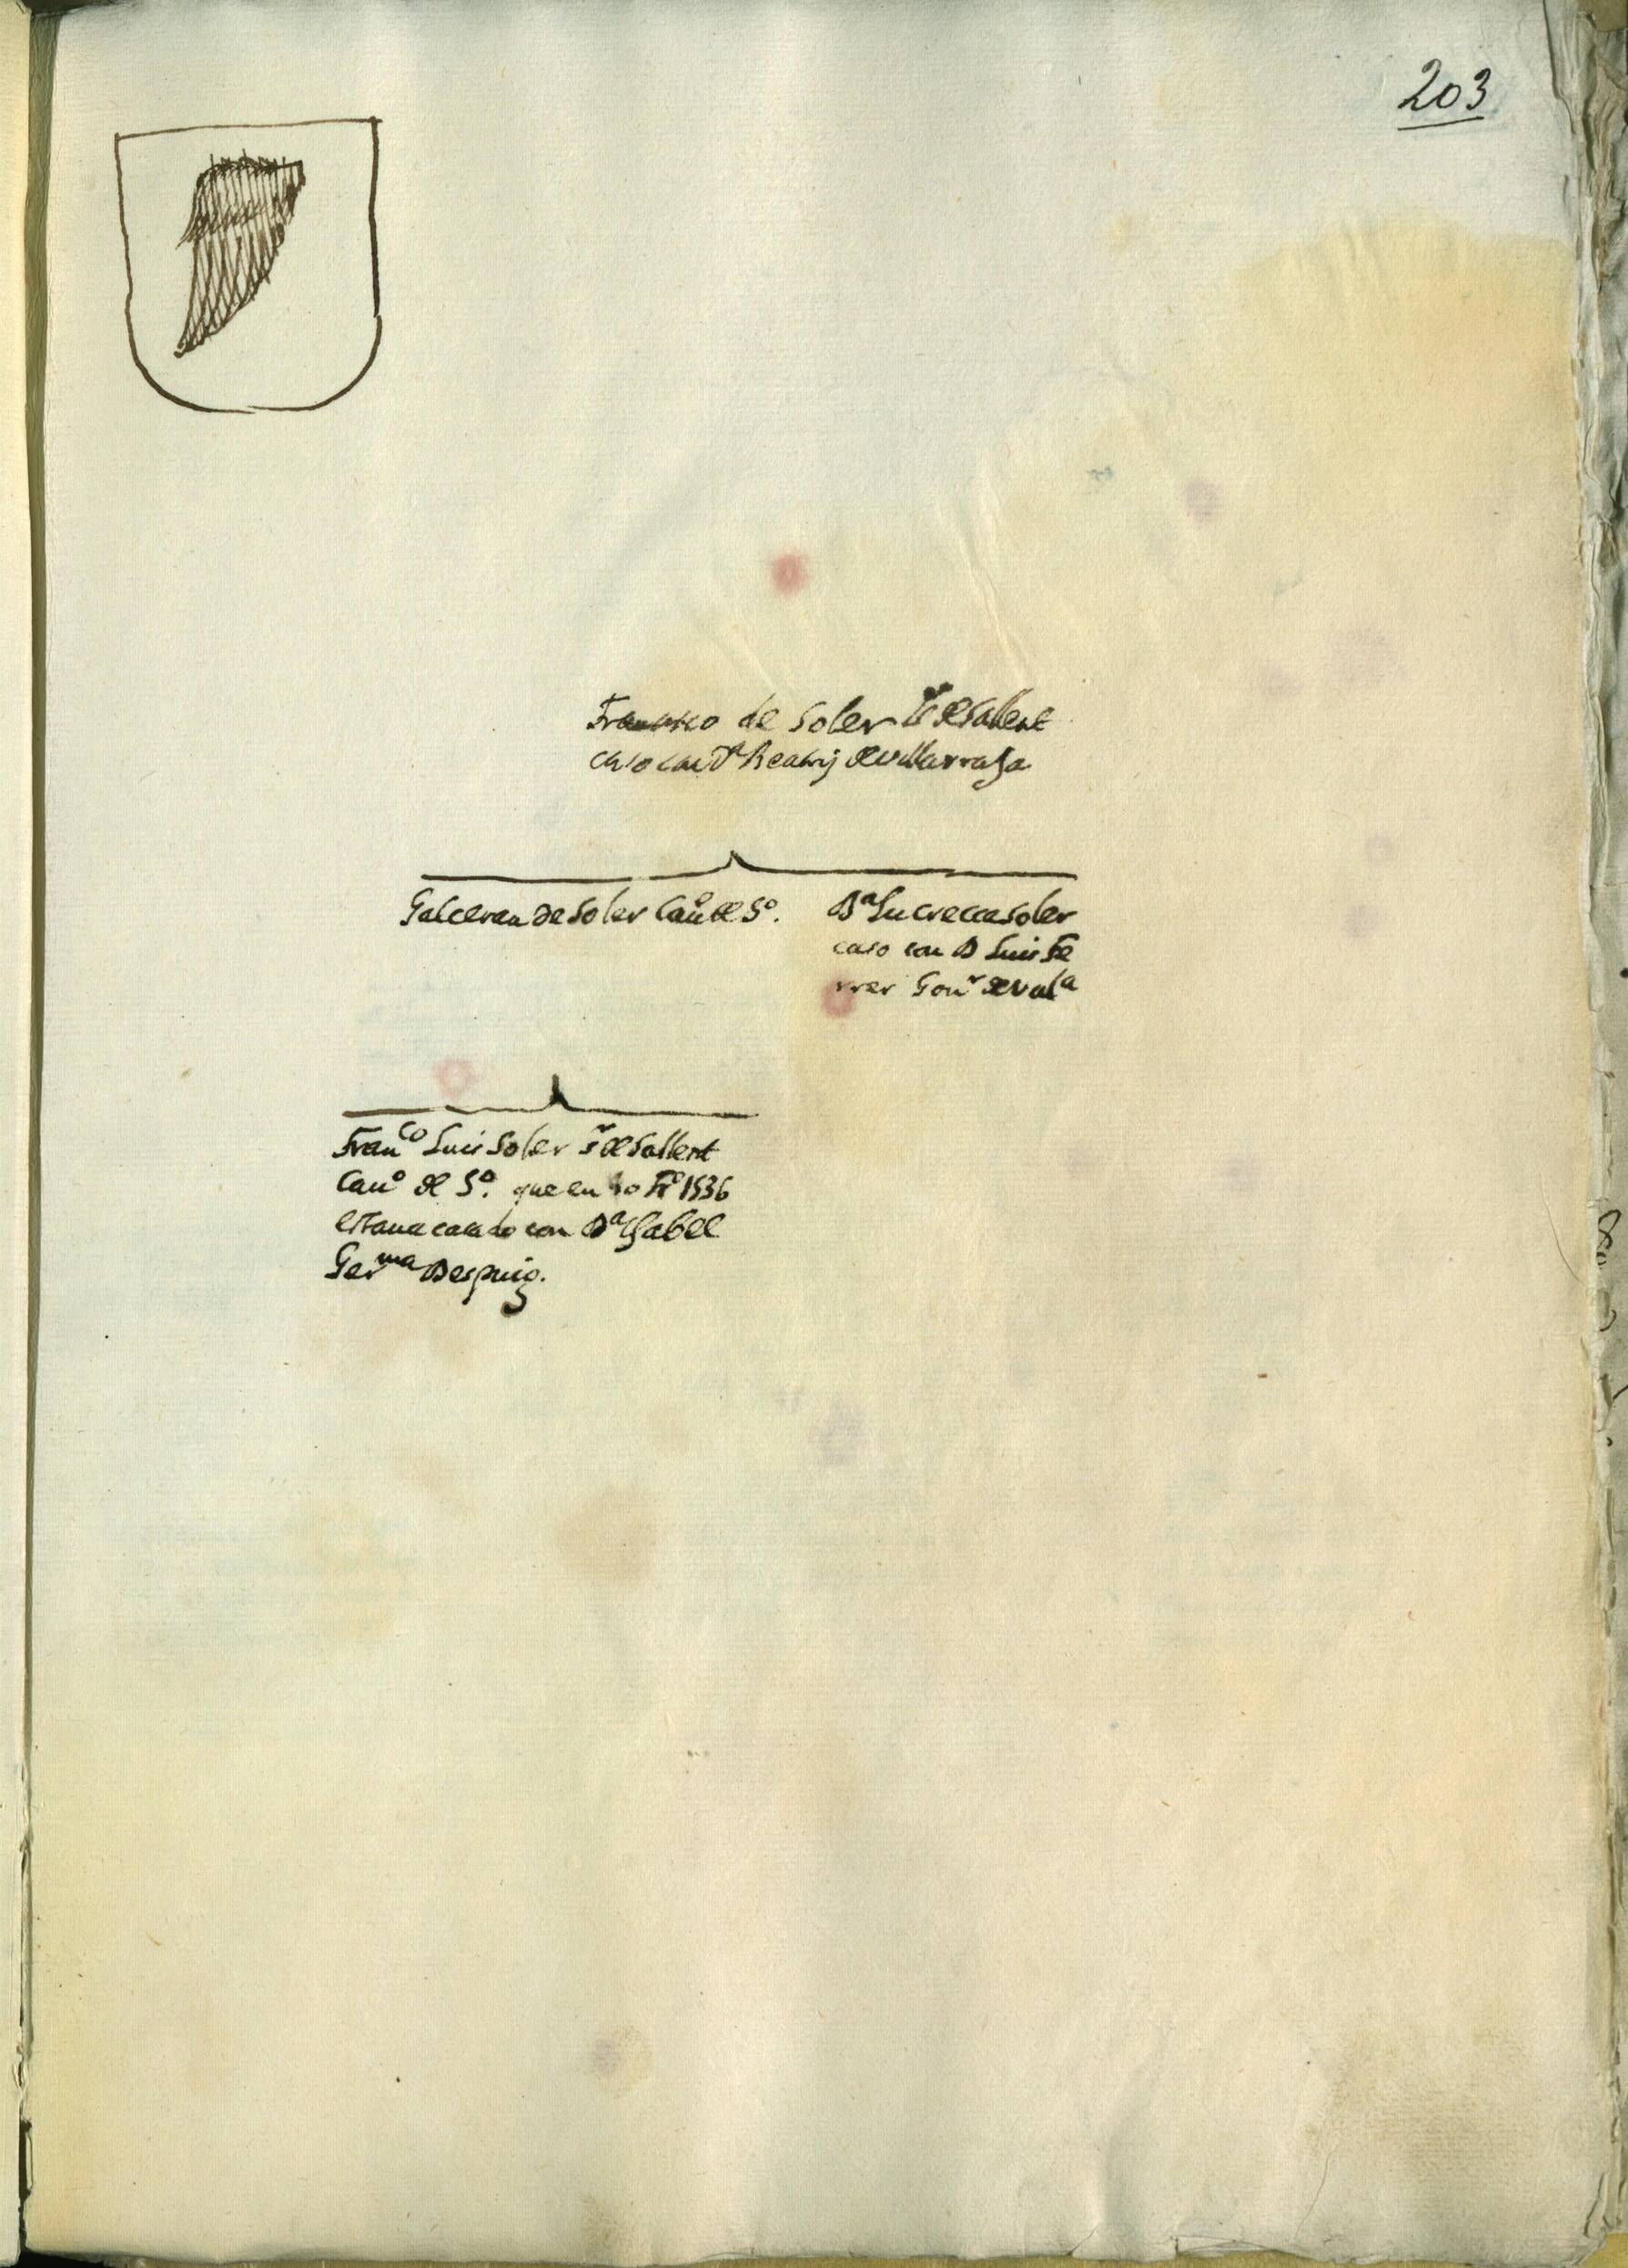 203
Francisco de Soler Sr de Sallent
caso con Da Beatriz de villarrasa
Galceran de Soler Cauo de So.
Da Lucrecia Soler
caso con D Luis Fe
rrer Gour de Vala
Franco Luis Soler sr de Sallent
Cauo de So. que en 1536
estaua casado con Da Ysabel
Germa Despuig.